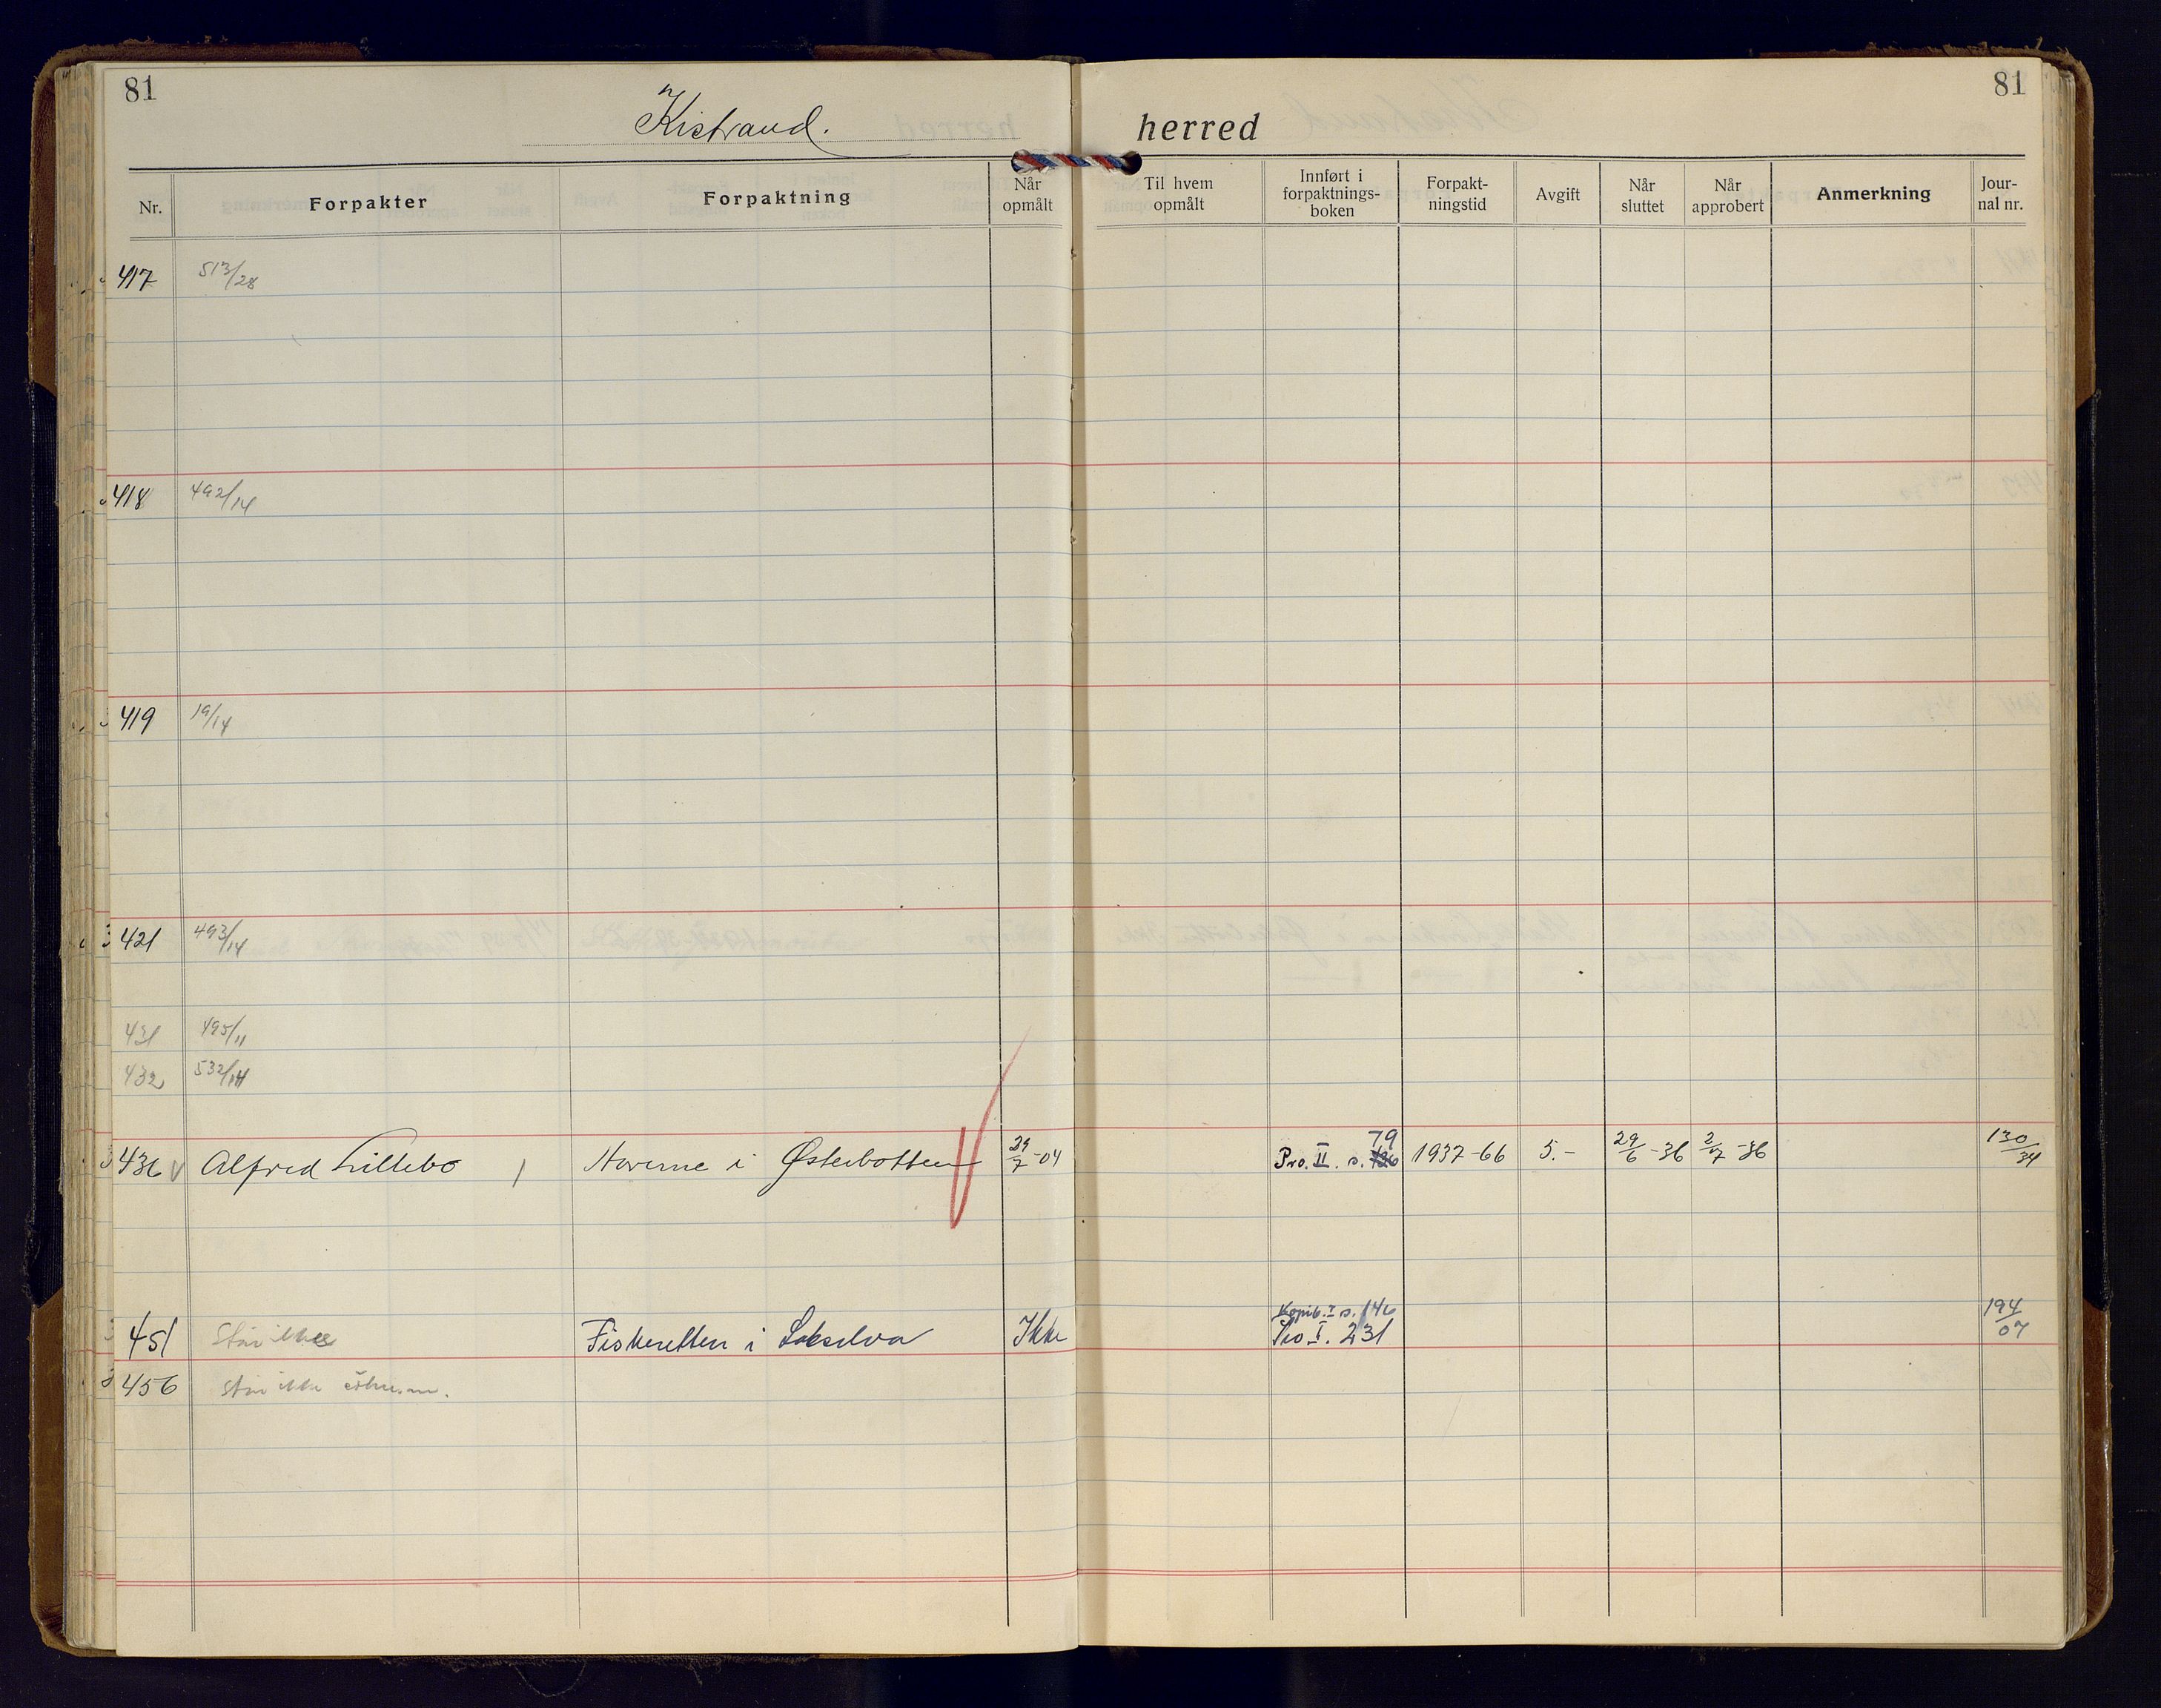 81
81
Kistrand. herred
Nr. Forpakter Forpaktning Når opmålt Til hvem opmålt Innført i forpaktnings-boken Forpakt-ningstid Avgift Når sluttet Når approbert Anmerkning Jour-nal nr.
417 513/28
418 492/14
419 19/14
421 493/14
431 495/11
432 532/14
79
436 V Alfred Lillebo / i Østerbotten 29/7-04 Pro. II. s. 1937-66 5.- 29/6-36 2/7-36 130/34
Kopib. I s. 146
451 Står ikke Fiskeretten i Lakselva Ikke Pro I. 231 194/07
456 står ikke